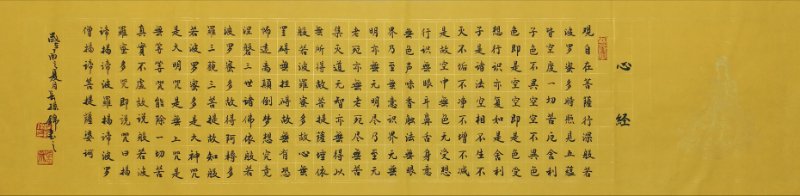 心经
观自在菩薩行深般若
波罗蜜多時照见五蕴
皆空度一切苦厄舍利
子色不异空空不异色
色即是空空即是色受
想行识亦复如是舍利
子是诸法空相不生不
灭不垢不净不增不减
是故空中無色無受想
行识無眼耳鼻舌身意
無色声味香触法無眼
界乃至無意识界無無
明亦無無明尽乃至無
老死亦無老死尽無苦
集灭道無智亦無得以
無所得故菩提薩埵依
般若波罗蜜多故心無
罣碍無罣碍故無有恐
怖遠离颠倒梦想究竟
涅槃三世诸佛依般若
波罗蜜多故得阿耨多
罗三藐三菩提故知般
若波罗蜜多是大神咒
是大明咒是無上咒是
無等等咒能除一切苦
真实不虚故说般若波
罗蜜多咒即说咒曰揭
谛揭谛波罗揭谛波罗
僧揭谛菩提薩婆诃
之夏月